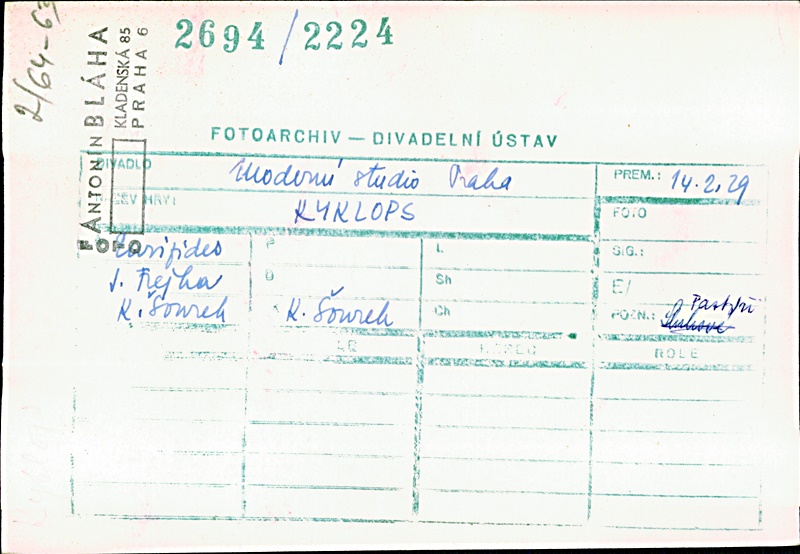 2694/2224
2/64-63
ANTONÍN BLÁHA
KLADENSKÁ 85
PRAHA 6
FOTO
FOTOARCHIV — DIVADELNÍ ÚSTAV
DIVADLO Moderní studio Praha PREM.: 14.2.29
NÁZEV HRY: KYKLOPS FOTO
Euripides P L SIG.:
J. Frejka D Sh E/
K. Šourek K. Šourek Ch POZN.: Pastýři
HEREC ROLE